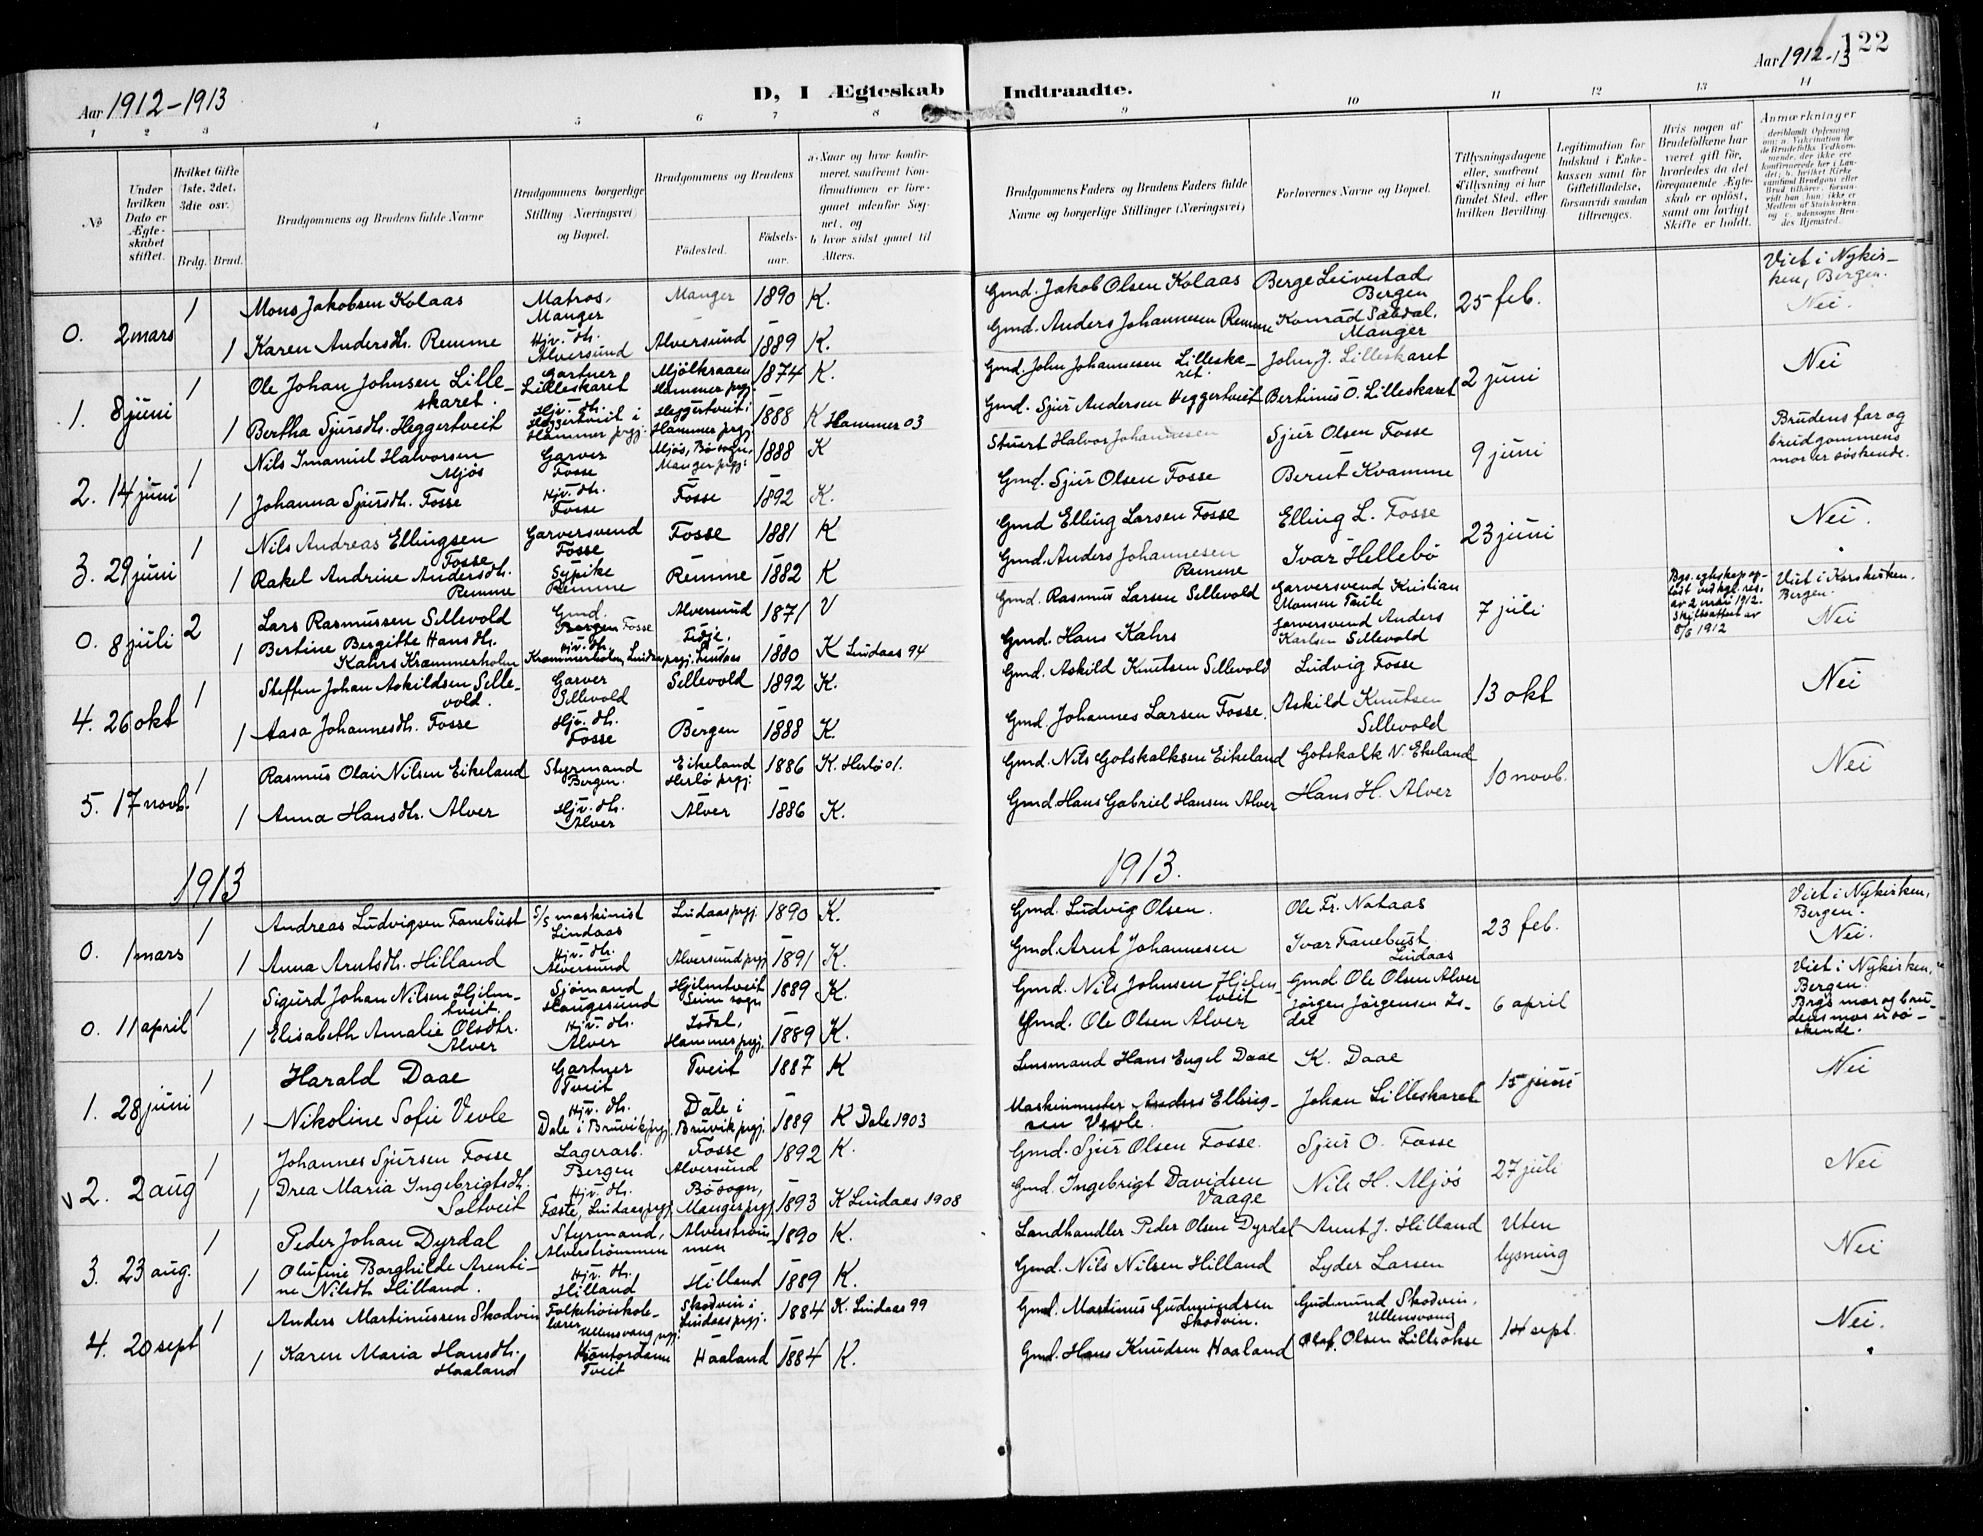 122
Aar 1912-1913
D, I Ægteskab Indtraadte.
Aar 1912-13
1 2 3 4 5 6 7 8 9 10 11 12 13 14
№
Under hvilken Dato er Ægteskabet stiftet.
Hvilket Gifte (1ste, 2det, 3die osv.)
Brdg. Brud.
Brudgommens og Brudens fulde Navne
Brudgommens borgerlige Stilling (Næringsvei) og Bopæl.
Brudgommens og Brudens
Födested. Födsels-aar.
a. Naar og hvor konfirmeret, saafremt Konfirmationen er foregaaet udenfor Sognet, og
b. hvor sidst gaaet til Alters.
Brudgommens Faders og Brudens Faders fulde Navne og borgerlige Stillinger (Næringsvei)
Forlovernes Navne og Bopæl.
Tillysningsdagene eller, saafremt Tillysning ei har fundet Sted, efter hvilken Bevilling
Legitimation for Indskud i Enkekassen samt for Giftetilladelse, forsaavidt saadan tiltrænges.
Hvis nogen af Brudefolkene har været gift för, hvorledes da det foregaaende Ægteskab er oplöst, samt om lovligt Skifte er holdt.
Anmærkninger
0. 2 mars 1 Mons Jakobsen Kolaas Matros, Manger Manger 1890 K. Gmd. Jakob Olsen Kolaas Berge Leivestad, Bergen 25 feb. Viet i Nykirken, Bergen. Nei.
1 Karen Andersdtr. Remme Hjv. dtr. Alversund Alversund 1889 K. Gmd. Anders Johannesen Remme Konrad Sædal, Manger
1. 8 juni 1 Ole Johan Johnsen Lilleskaret. Gartner Lilleskaret Mjölkraaen Hammer prgj. 1874 K. Gmd. John Johannesen Lilleskaret. John J. Lilleskaret 2 juni Nei
1 Bertha Sjursdtr. Heggertveit Hjv. dtr. Heggertveit i Hammer prgj. Heggertveit i Hammer prgj. 1888 K Hammer 03 Gmd. Sjur Andersen Heggertveit Bertinus O. Lilleskaret
2. 14 juni 1 Nils Imanuel Halvorsen Mjös Garver Fosse Mjös, Bö sogn, Manger prgj. 1888 K Stuert Halvor Johannesen Sjur Olsen Fosse 9 juni Brudens far og brudgommens mor er söskende.
1 Johanna Sjursdtr. Fosse Hjv. dtr. Fosse Fosse 1892 K. Gmd. Sjur Olsen Fosse Berut Kvamme
3. 29 juni 1 Nils Andreas Ellingsen Fosse Garversvend Fosse Fosse 1881 K Gmd Elling Larsen Fosse Elling L. Fosse 23 juni Nei.
1 Rakel Andrine Andersdtr. Remme Sypike Remme Remme 1882 K Gmd. Anders Johannesen Remme Ivar Hellebö
0. 8 juli 2 Lars Rasmussen Sellevold Gmd. Fosse Alversund 1871 V Gmd. Rasmus Larsen Sellevold Garversvend Kristian Monsen Taule 7 juli Bgs. egteskap oplöst ved kgl. res. av 2 mai 1912. Skifteattest av 8/6 1912 Viet i Korskirken, Bergen. Nei
1 Bertine Bergitte Hansdtr. Kahrs Krammerholm Hjv. dtr. Krammerholm, Lindaas prgj. Lindaas 1880 K Lindaas 94 Gmd. Hans Kahrs Garversvend Anders Karlsen Sellevold
4. 26 okt 1 Steffen Johan Askildsen Sellevold. Garver Sellevold Sellevold 1892 K. Gmd. Askild Knutsen Sellevold Ludvig Fosse 13 okt Nei
1 Aasa Johannesdtr. Fosse Hjv. dtr. Fosse Bergen 1888 K. Gmd. Johannes Larsen Fosse. Askild Knutsen Sellevold
5. 17 novb. 1 Rasmus Olai Nilsen Eikeland Styrmand Bergen. Eikeland Herlö prgj. 1886 K. Herlö 01. Gmd. Nils Gotskalksen Eikeland Gotskalk N. Ekeland 10 novb. Nei
1 Anna Hansdtr. Alver Hjv. dtr. Alver Alver 1886 K. Gmd Hans Gabriel Hansen Alver Hans H. Alver
1913 1913.
0. 1 mars 1 Andreas Ludvigsen Fanebust S/S maskinist Lindaas Lindaas prgj. 1890 K. Gmd. Ludvig Olsen. Ole Fr. Nataas 23 feb. Viet i Nykirken, Bergen. Nei.
1 Anna Arntsdtr. Hilland Hjv. dtr. Alversund Alversund prgj 1891 K. Gmd. Arnt Johannesen Ivar Fanebust Lindaas
0. 11 april 1 Sigurd Johan Nilsen Hjelmtveit. Sjömand Haugesund Hjelmtveit Seim sogn 1889 K. Gmd. Nils Johnsen Hjelmtveit Gmd Ole Olsen Alver 6 april Viet i Nykirken, Bergen. Brgs mor og brudens mor er söskende.
1 Elisabeth Amalie Olsdtr. Alver Hjv. dtr. Alver Isdal, Hammer prgj. 1889 K. Gmd. Ole Olsen Alver Jörgen Jörgensen Isdal
1. 28 juni 1 Harald Daae Gartner Tveit Tveit 1887 K Lensmand Hans Engel Daae K. Daae 15 juni Nei
1 Nikoline Sofie Vevle Hjv. dtr. Dale i Bruvik prgj. Dale i Bruvik prgj. 1889 K Dale 1903 Maskinmester Anders Ellingsen Vevle. Johan Lilleskaret
2. 2 aug 1 Johannes Sjursen Fosse Lagerarb. Bergen Fosse Alversund 1892 K. Gmd. Sjur Olsen Fosse. Sjur O. Fosse 27 juli Nei
1 Drea Maria Ingebrigtsdtr. Saltveit Hjv. dtr. Lindaas prgj. Bö sogn, Manger prgj 1893 K Lindaas 1908 Gmd. Ingebrigt Davidsen Vaage Nils H. Mjös
3. 23 aug. 1 Peder Johan Dyrdal Styrmand, Alverströmmen Alverströmmen 1890 K. Landhandler Peder Olsen Dyrdal Arnt J. Hilland Uten lysning Nei
1 Olufine Borghilde Arentine Nilsdtr Hilland. Hjv. dtr. Hilland Hilland 1889 K. Gmd. Nils Nilsen Hilland Lyder Larsen
4. 20 sept 1 Anders Martinussen Skodvin Folkehöiskolelærer Ullensvang prgj. Skodvin i Lindaas prgj. 1884 K. Lindaas 99 Gmd. Martinus Gudmundsen Skodvin. Gudmund Skodvin, Ullensvang 14 sept. Nei.
1 Karen Maria Hansdtr. Haaland Kontordame Tveit Haaland 1884 K. Gmd. Hans Knudsen Haaland Olaf Olsen